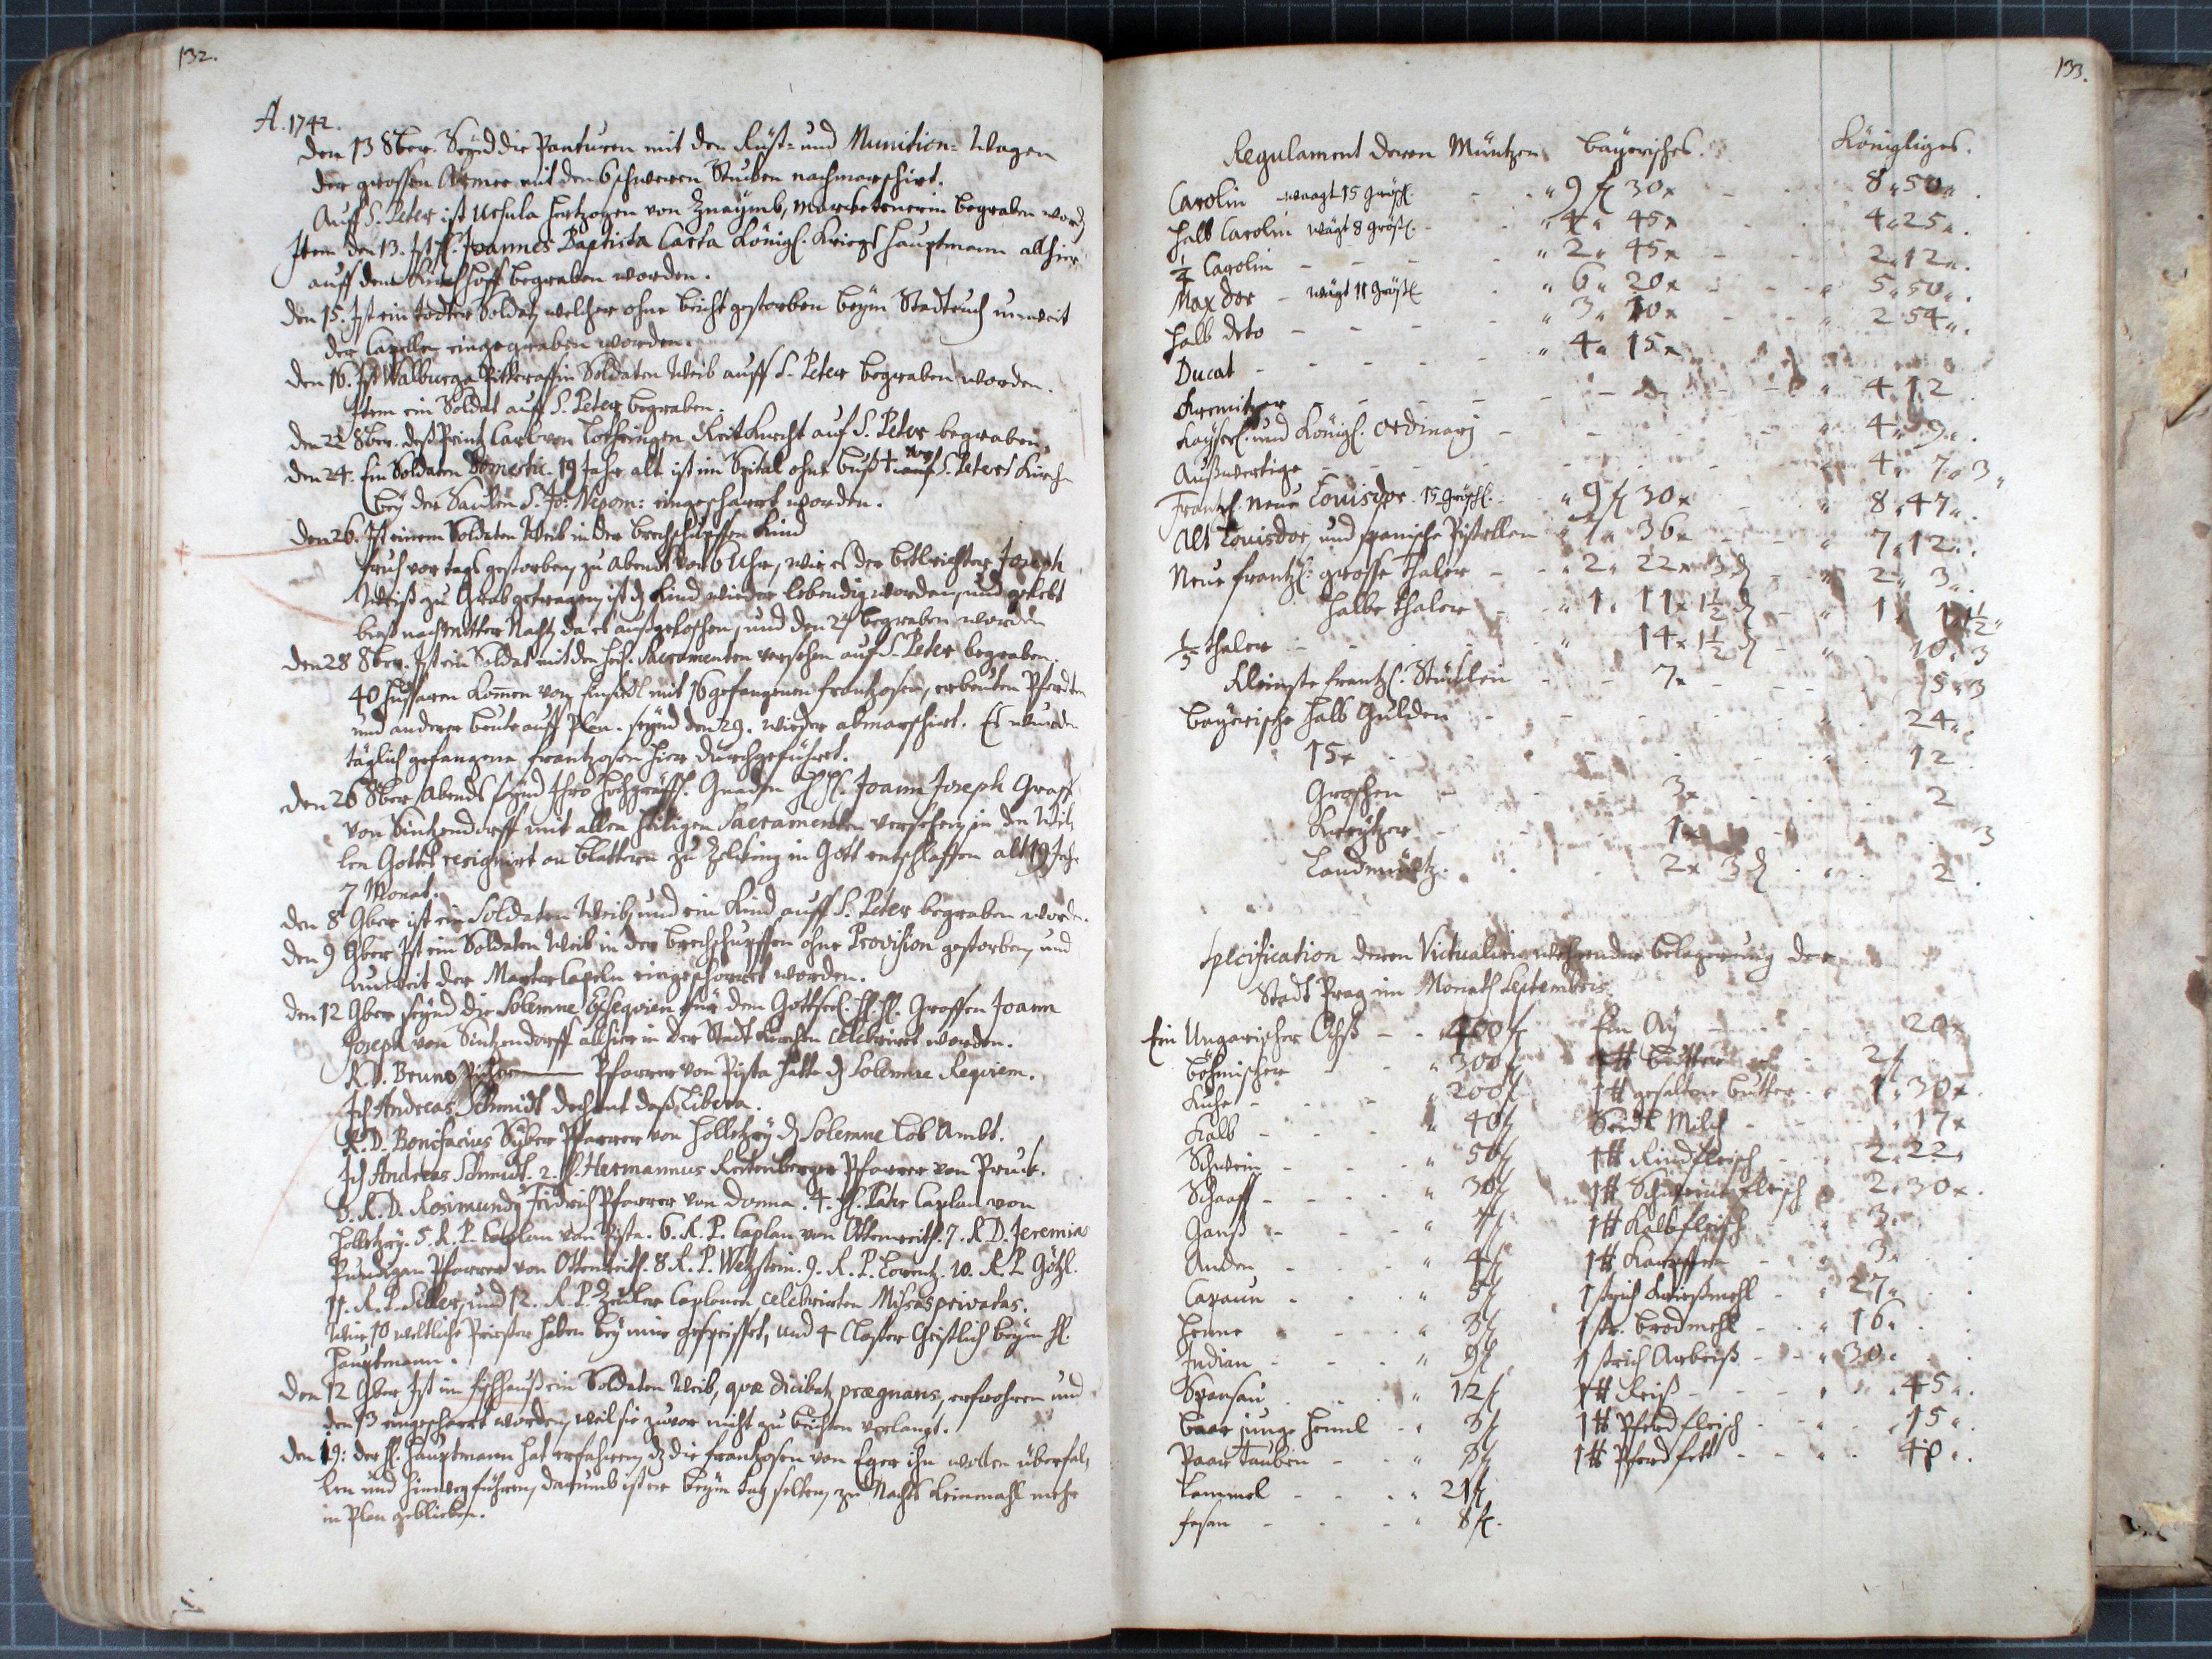 132.
A. 1742.
Den 13 8ber. Seynd die Panduren mit den Rüst- und Munition- Wägen
der grossen Armee mit den 6 schweren Stucken nachmarschirt.
Auff S. Peter ist Ursula Hertzogin von Znaymb, Marcketenerin begraben word
Item den 13. Ist H. Joannes Baptista Casta Königl. Kriegs Hauptmann allhier
auff dem Kirchhoff begraben worden.
Den 15. Ist ein todter Soldat, welcher ohne beicht gestorben beym Stadtteuch unweit
der Capellen eingegraben worden.
Den 16. Ist Walburga Soldaten Weib auff S. Peter begraben worden.
Item ein Soldat auff S. Peter begraben.
Den 22 8ber. deß Printz Carl von Lothringen Reitknecht auf S. Peter begraben.
Den 24. Ein Soldaten Domestic. 19 Jahr alt ist im Spital ohne buß † auf S. Peters Kirch
bey der Saulen S. Jo: Nepom: eingescharrt worden.
Den 26. Ist einem Soldaten Weib in der Kind
fruh vor tags gestorben, zu abends vor 6 Uhr, wie es der bettlrichter Joseph
Weiß zu Grab getragen, ist dz Kind wieder lebendig worden, und gelebt
biß nach Mitter Nacht, da es außgeloschen, und den 27 begraben worden
Den 28 8ber. Ist ein Soldat mit den heil. Sacramenten versehen auf S. Peter begraben.
40 Hussaren komen von Einsiedl mit 16 gefangenen Frantzosen, erbeuten Pferdten
und anderer beute auff Plan. seynd den 29. wieder abmarschirt. Es wurden
täglich gefangene Frantzosen hier durchgeführet.
Den 26 8ber Abends seynd Ihro Hochgräffl. Gnaden Joann Joseph Graff
von Sintzendorff mit allen heiligen Sacramenten versehen, in den Wil-
len Gottes resignirt an blattern zu in Gott entschlaffen alt 19 Jahr
7 Monat.
Den 8 9ber ist ein Soldaten Weib, und ein Kind auff S. Peter begraben worden.
Den 9 9ber Ist ein Soldaten Weib in der ohne Provision gestorben, und
unweit der Marter Capeln eingescharrt worden.
Den 12 9ber seynd die Solemne Exequien für dem Gottseel. Graffen Joann
Joseph von Sintzendorff allhier in der Stadt Kirchen celebriret worden.
R. D. Bruno Pfarrer von Pista hatte dz Solemne Requiem.
Ich Andreas Schmidt Dechant daß Libera.
R. D. Bonifacius Syber Pfarrer von dz Solemne Lob Ambt.
Ich Andreas Schmidt. 2. H. Hermannus Reitenberger Pfarrer von Pruck.
3. R. D. Rosimundg Pfarrer von Donna. 4. H. Caplan von
5. R. P. Caplan von Pista. 6. R. P. Caplan von Ottenreith. 7. R. D. Jeremias
Pfarrer von Ottenreith. 8 R. P. Wetzstein. 9. R. P. Lorentz. 10. R. P. Götzl.
11. R. P. und 12. R. P. Caplonen celebrirten Missas privatas.
Wir 10 weltliche Priester haben bey mir gespeisset, und 4 Closter Geistlich beym H.
Hauptmann.
Den 12 9ber Ist im ein Soldaten Weib, quæ dicibatur prægnans, erfrohren und
den 13 eingescharrt worden, weil sie zuvor nicht zu beichten verlangt.
Den 19: der H. Hauptmann hat erfahren, dz die Frantzosen von Eger ihn wollen überfal-
len und hinweg führen, darumb ist er beym tag selten, zu Nachts keinmahl mehr
in Plan geblieben.
133.
Regulament deren Müntzen Bayerisches. Königliges.
Carolin waagt 15 Gröschl. 9 f 30 x 8 „ 50 „
Halb Carolin wägt 8 Gröschl. 4 „ 45 x 4 „ 25 „
1/4 Carolin 2 „ 45 x 2 „ 12 „
Max dor wägt 11 Gröschl. 6 „ 20 x 5 „ 50 „
Halb deto 3 „ 10 x 2 54 „
Ducat 4 „ 15 x
Kremitzer 4 „ 12
Kayserl. und Königl. ordinarj 4 „ 9 „
Außwertige 4 „ 7 „ 3 „
Frantz. Neue Louisdor. 15 Gröschl. 9 f 30 x 8 „ 47 „
Alt Louisdor, und spanische Pistollen 36 x 7 „ 12 „
Neue frantz: grosse thaler 2 „ 22 x 3 d 2 „ 3 „
Halbe thaler 1 „ 11 x 1 1/2 d 1 „ 1 „ 1 1/2 „
1/5 thaler 14 x 1 1/2 d 10 „ 3
Kleinste frantz. Stücklein 7 x 5 „ 3
Bayerische halb Gulden 24 „
15 x 12
Groschen 3 x 2
Kreutzer 1 x 3
Landmüntz. 2 x 3 d 2
Specification deren Victualien wehrender belagerung der
Stadt Prag im Monath Septembris.
Ein Ungarischer Ochß 400 f Ein Ay 20 x
böhmischer 300 f 1 ℔ butter 2 f
Kuhe 200 f 1 ℔ gesaltzne butter 1 „ 30 x
Kalb 40 f Seidl Milch 17 x
Schwein 50 f 1 ℔ Rindfleisch 2 „ 22 „
Schaaff 30 f 1 ℔ Schweine fleisch 2 „ 30 x
Ganß 7 f 1 ℔ Kalbfleisch 3 „
Anden 4 f 1 ℔ Karpffen 3 „
Capaun 5 f 1 strich Mehl 27 „
Henne 3 f 1 str. brodmehl 16 „
Indian 9 f 1 strich Arbeiß 30 „
Spensau 12 f 1 ℔ Reiß 45 „
Paar junge Hennl 3 f 1 ℔ Pferdfleisch 15 „
Paar Tauben 3 f 1 ℔ Pferdfett 48 „
Lammel 21 f
Fasan 8 f.